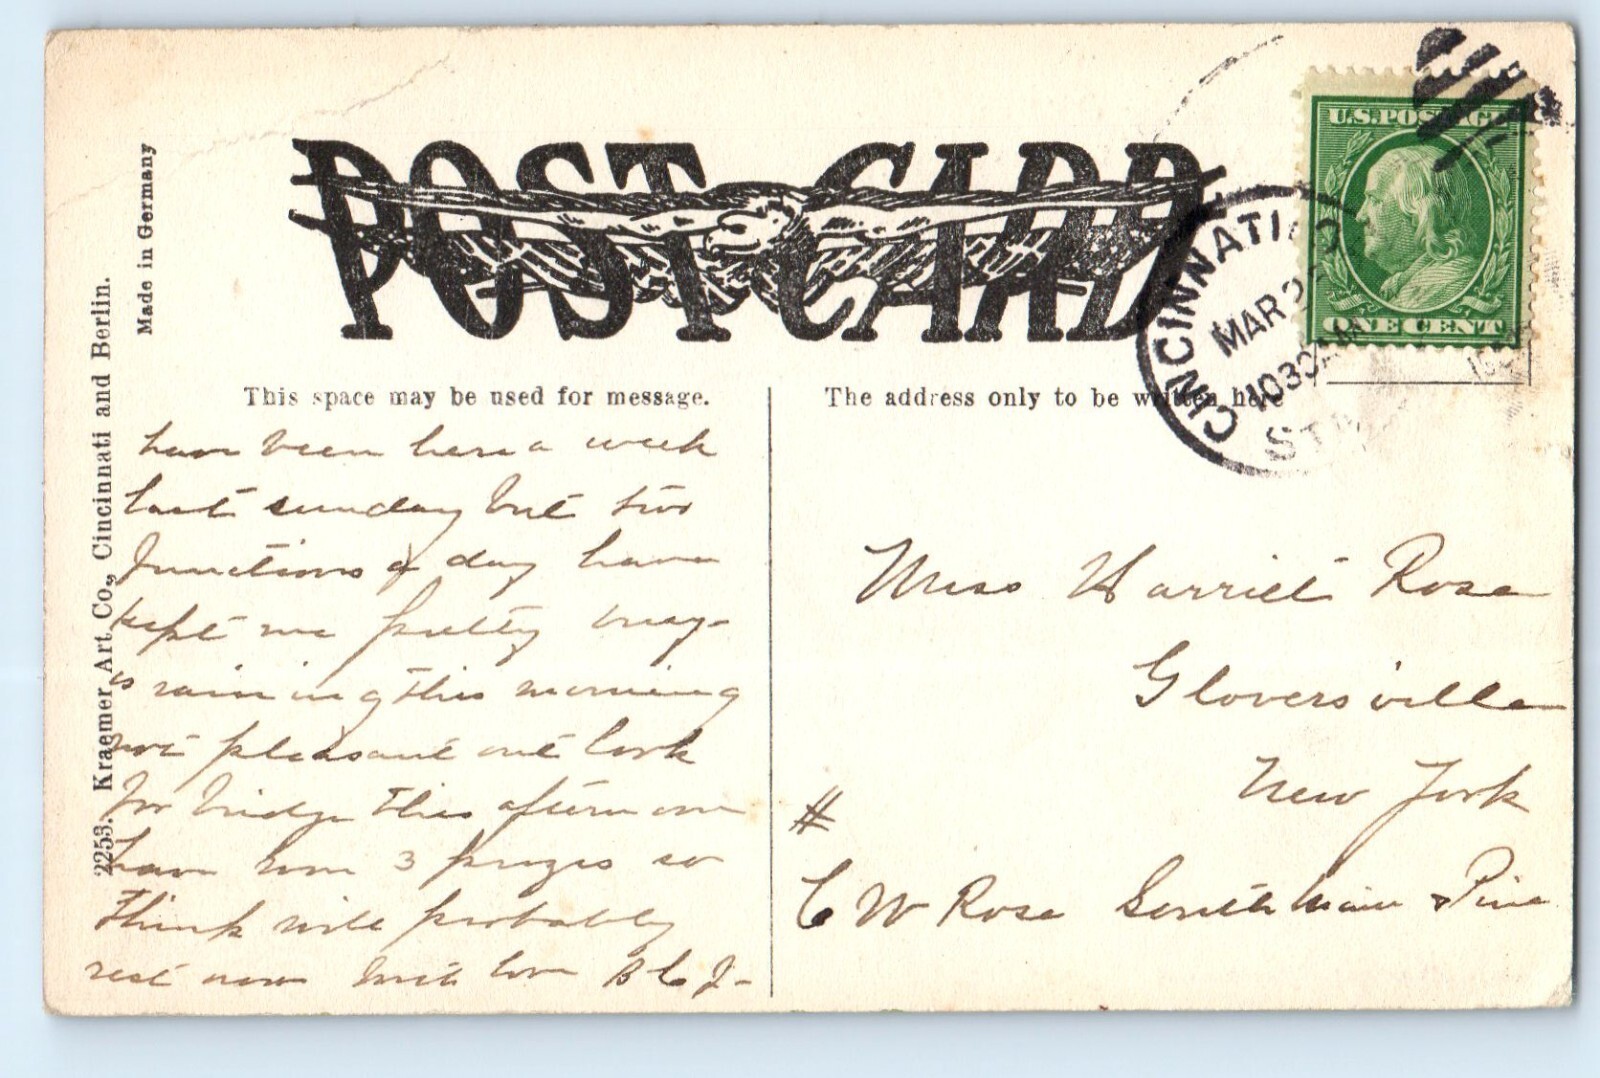 POST CARD
U.S. POSTAGE
ONE CENT
CINCINNATI, O.
MAR
1030 AM
Made in Germany
2253. Kraemer Art Co., Cincinnati and Berlin.
This space may be used for message.
The address only to be written here
have been here a week
last sunday but two
functions a day have
kept me pretty busy-
is raining this morning
not pleasant out look
for bridge this afternoon
have won 3 prizes so
think will probably
rest now with love B C J-
Miss Harriet Rose
Gloversville
New York
#
C W Rose South Main & Pine